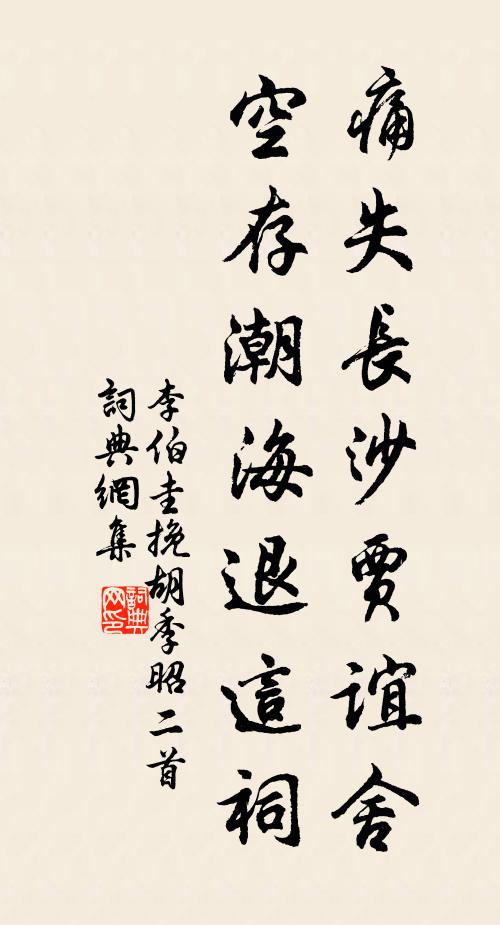 痛失長沙賈誼舍
空存潮海退這祠
李伯圭挽胡季昭二首
詞典網集
詞典网印